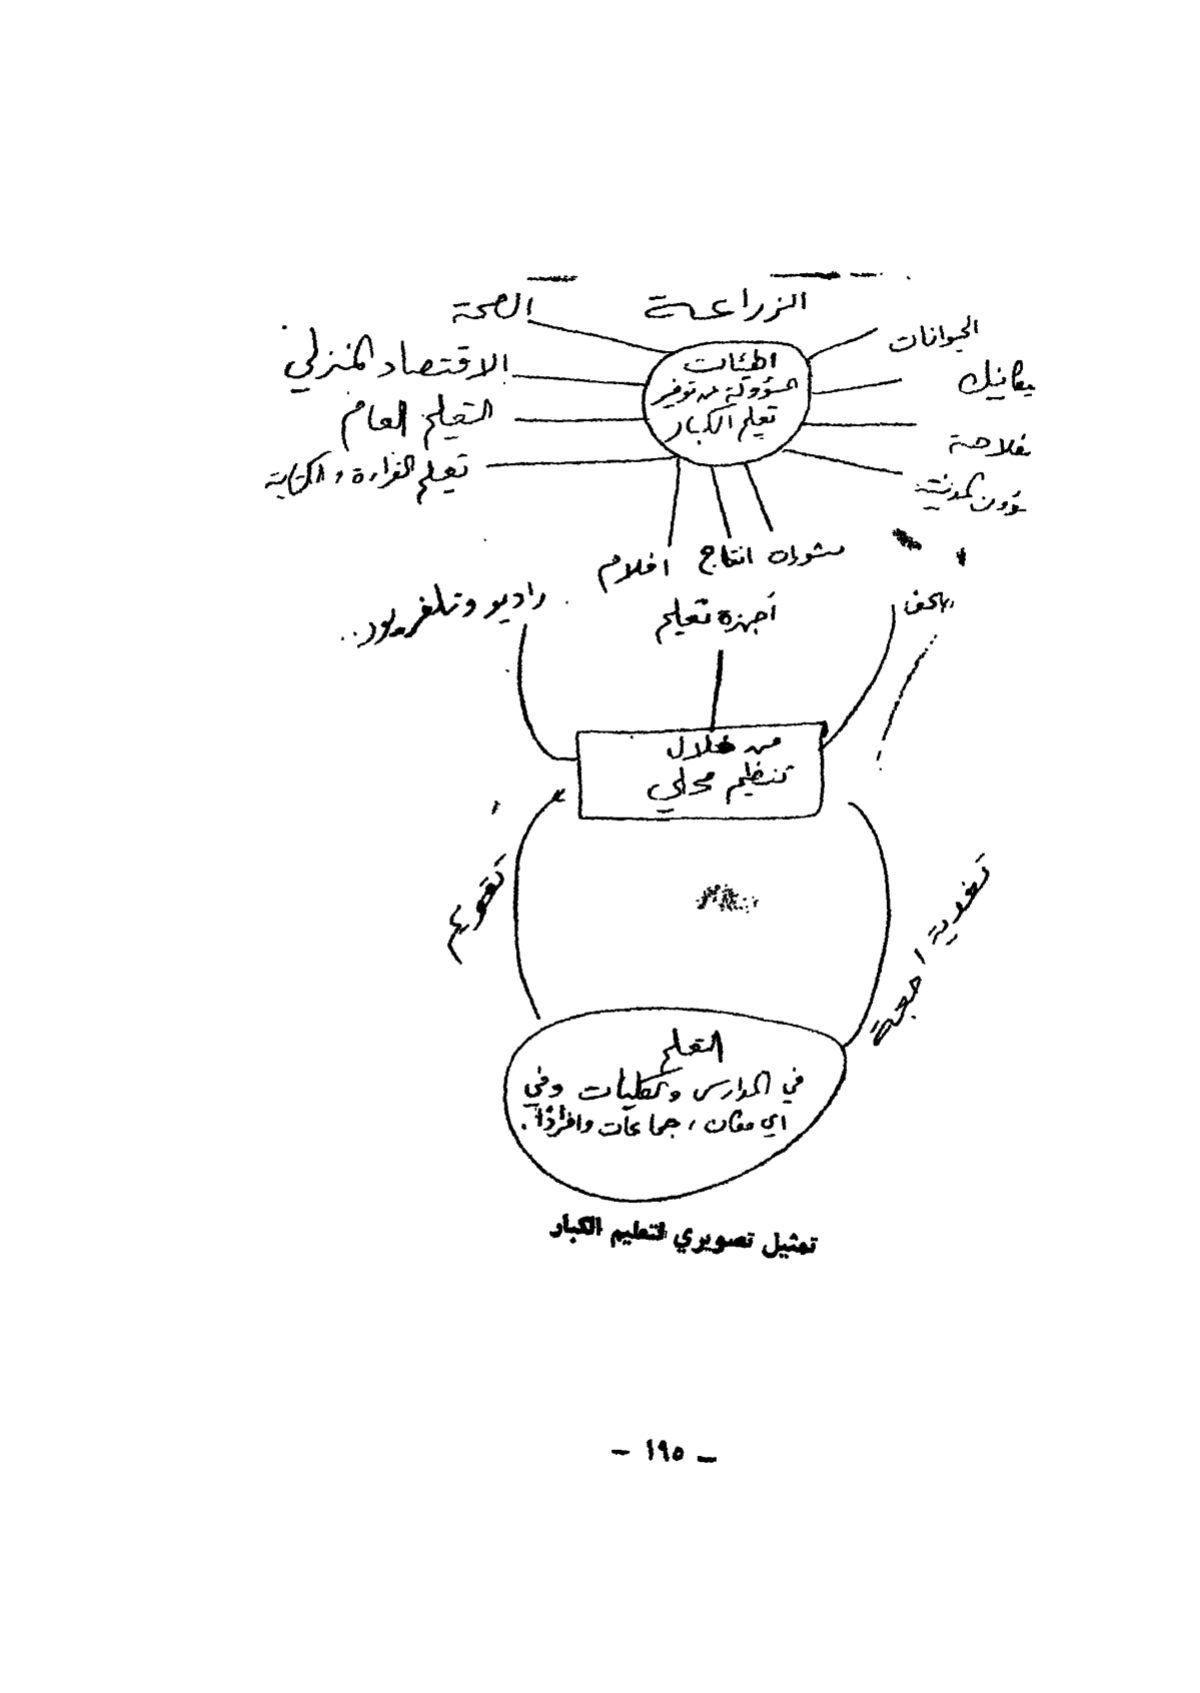 الزراعة
الصحة
الحيوانات
الهيئات
الاقتصاد المنزلي
المسؤولة عن توفير
التعليم العام
تعليم الكبار
فلاحة
تعليم القراءة والكتابة
انتاج افلام
راديو وتلفزيون..
أجهزة تعليم
من خلال
تنظيم محلي
تقويم
تغذية
التعليم
في المدارس والكليات وفي
اي مكان ، جماعات وافرادًا .
تمثيل تصويري لتعليم الكبار
– ١٩٥ –